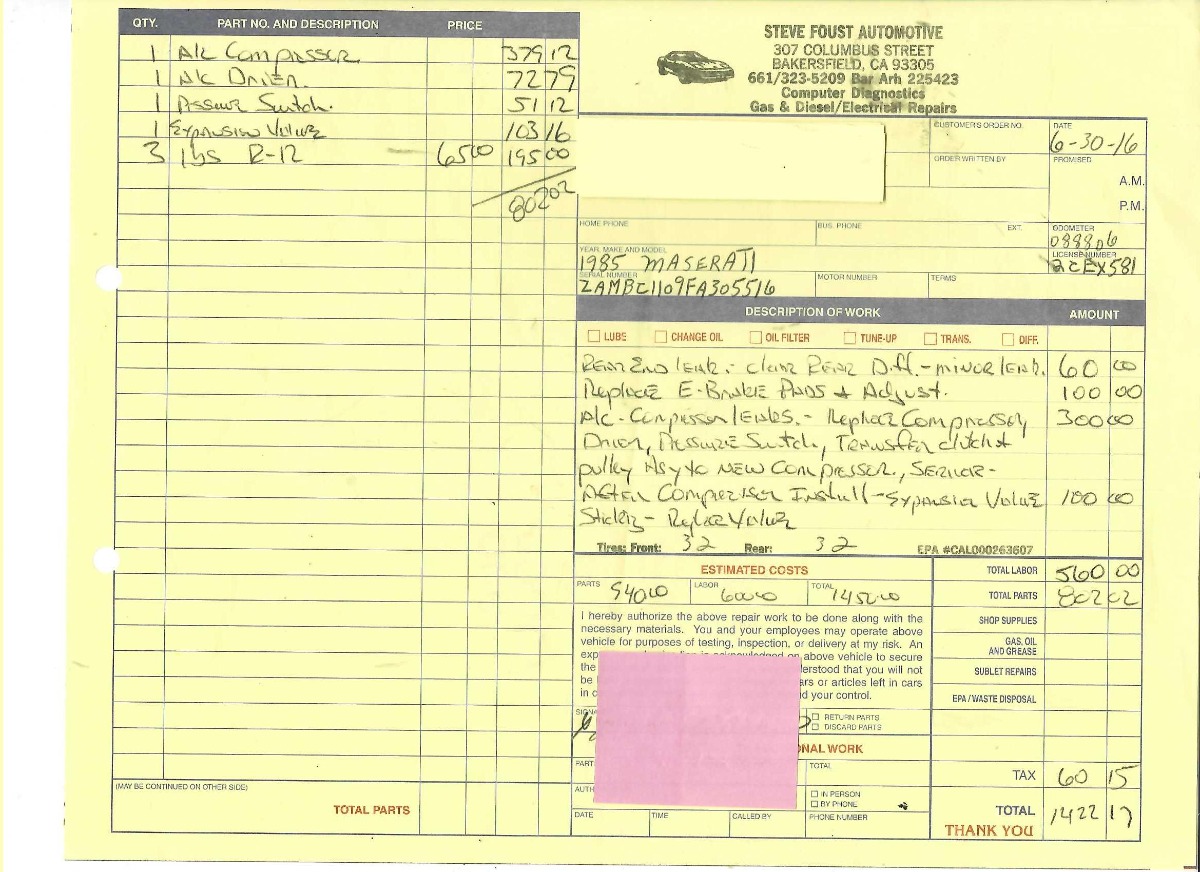 QTY. PART NO. AND DESCRIPTION PRICE
1 A/C Compressor 379 12
1 A/C Drier 72 79
1 Pressure Switch. 51 12
1 Expansion Valve 103 16
3 lbs R-12 65 00 195 00
802 02
(MAY BE CONTINUED ON OTHER SIDE)
TOTAL PARTS
STEVE FOUST AUTOMOTIVE
307 COLUMBUS STREET
BAKERSFIELD, CA 93305
661/323-5209 Bar Arh 225423
Computer Diagnostics
Gas & Diesel/Electrical Repairs
CUSTOMER'S ORDER NO. DATE 6-30-16
ORDER WRITTEN BY PROMISED
A.M.
P.M.
HOME PHONE BUS. PHONE EXT. ODOMETER
YEAR, MAKE AND MODEL
1985 MASERATI
LICENSE NUMBER 2CEX581
SERIAL NUMBER MOTOR NUMBER TERMS
ZAMBC1109FA305516
DESCRIPTION OF WORK AMOUNT
LUBE CHANGE OIL OIL FILTER TUNE-UP TRANS. DIFF.
Rear End leak - clean Rear Diff. - minor leak. 60 00
Replace E-Brake Pads + Adjust. 100 00
A/C - Compressor leaks. - Replace Compressor 300 00
Drier, Pressure Switch, Transfer clutch +
pulley Asy to New Compressor, Service -
After Compressor Install - Expansion Valve 100 00
Sticking - Replace Valve
Tires: Front: 32 Rear: 32 EPA #CAL000263607
ESTIMATED COSTS
PARTS 940 00 LABOR 600 00 TOTAL 1450 00
TOTAL LABOR 560 00
TOTAL PARTS 802 02
SHOP SUPPLIES
GAS, OIL
AND GREASE
SUBLET REPAIRS
EPA / WASTE DISPOSAL
TAX 60 15
TOTAL 1422 17
THANK YOU
I hereby authorize the above repair work to be done along with the
necessary materials. You and your employees may operate above
vehicle for purposes of testing, inspection, or delivery at my risk. An
above vehicle to secure
the erstood that you will not
be ars or articles left in cars
in d your control.
RETURN PARTS
DISCARD PARTS
ONAL WORK
PART TOTAL
AUTH IN PERSON
BY PHONE
DATE TIME CALLED BY PHONE NUMBER